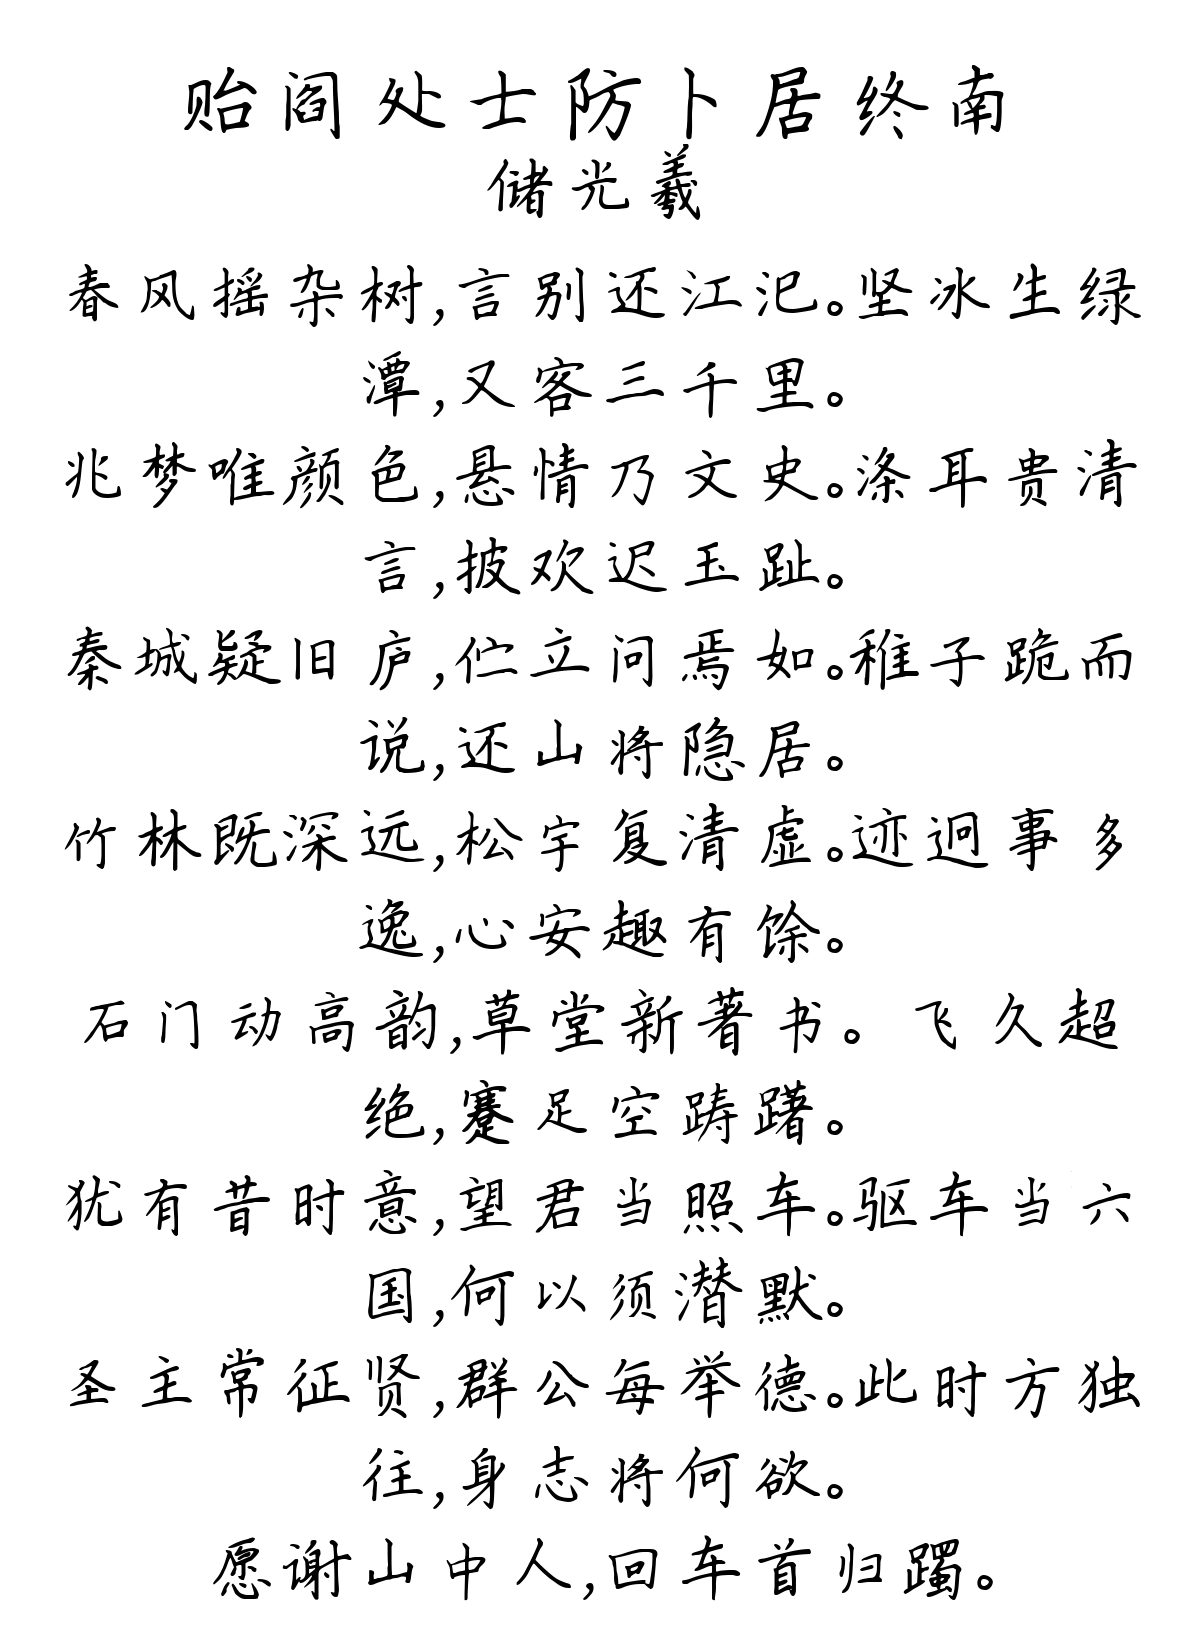 贻阎处士防卜居终南
储光羲
春风摇杂树,言别还江汜。坚冰生绿
潭,又客三千里。
兆梦唯颜色,悬情乃文史。涤耳贵清
言,披欢迟玉趾。
秦城疑旧庐,伫立问焉如。稚子跪而
说,还山将隐居。
竹林既深远,松宇复清虚。迹迥事多
逸,心安趣有馀。
石门动高韵,草堂新著书。飞久超
绝,蹇足空踌躇。
犹有昔时意,望君当照车。驱车当六
国,何以须潜默。
圣主常征贤,群公每举德。此时方独
往,身志将何欲。
愿谢山中人,回车首归躅。